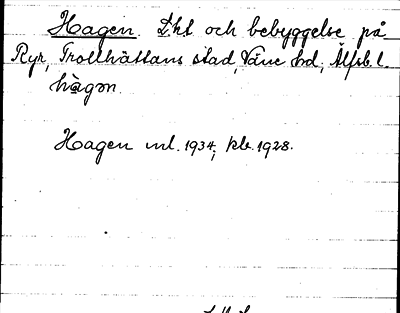 Hagen. Lht och bebyggelse på
Ryr, Trollhättans stad, Väne hd, Älfsb. l.
hàgən
Hagen ml. 1934; pb. 1928.